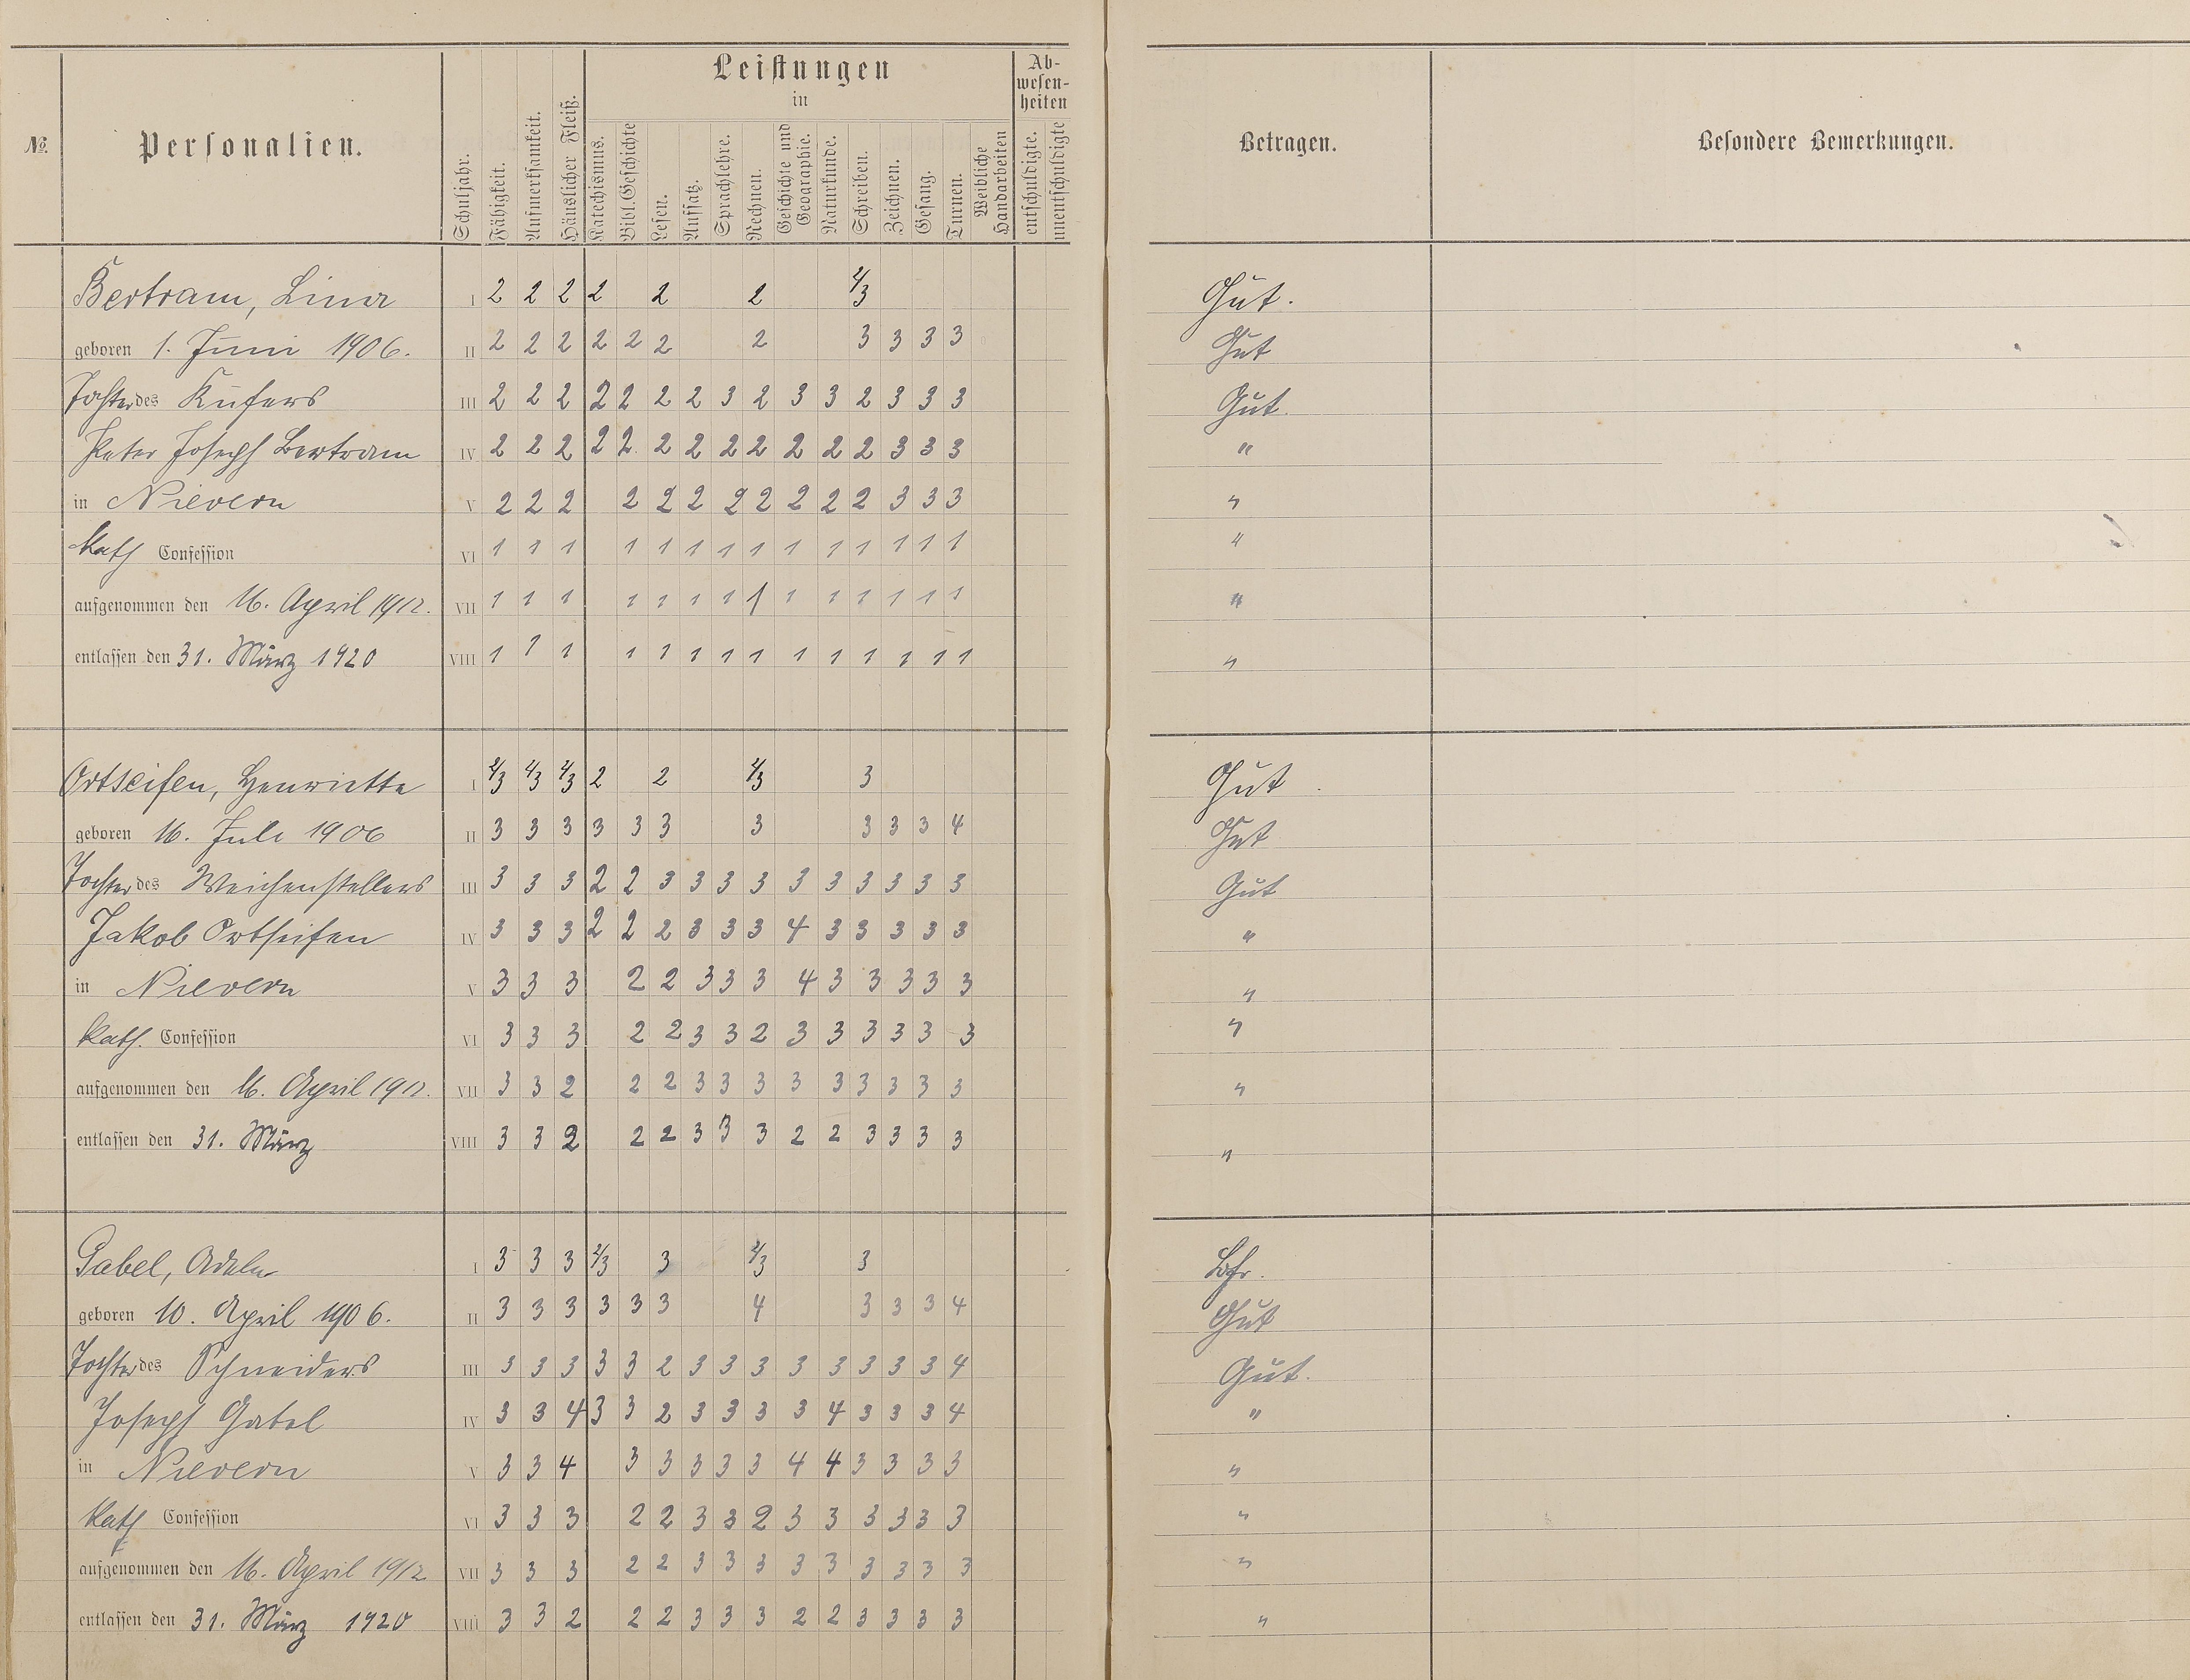 Leistungen
in
Ab-
wesen-
heiten
№.
Personalien.
Schuljahr.
Fähigkeit.
Aufmerksamkeit.
Häuslicher Fleiß.
Katechismus.
Bibl. Geschichte
Lesen.
Aufsatz.
Sprachlehre.
Rechnen.
Geschichte und
Geographie.
Naturkunde.
Schreiben.
Zeichnen.
Gesang.
Turnen.
Weibliche
Handarbeiten
entschuldigte.
unentschuldigte
Betragen.
Besondere Bemerkungen.
Bertram, Lina I 2 2 2 2 2 2 2/3 Gut.
geboren 1. Juni 1906. II 2 2 2 2 2 2 2 3 3 3 3 Gut
Tochter des Küfers III 2 2 2 2 2 2 2 3 2 3 3 2 3 3 3 Gut.
Peter Joseph Bertram IV 2 2 2 2 2 2 2 2 2 2 2 2 3 3 3 "
in Nievern V 2 2 2 2 2 2 2 2 2 2 2 3 3 3 "
kath Confession VI 1 1 1 1 1 1 1 1 1 1 1 1 1 1 "
aufgenommen den 16. April 1912. VII 1 1 1 1 1 1 1 1 1 1 1 1 1 1 "
entlassen den 31. März 1920 VIII 1 1 1 1 1 1 1 1 1 1 1 1 1 1 "
Ortseifen, Henriette I 2/3 2/3 2/3 2 2 2/3 3 Gut
geboren 16. Juli 1906 II 3 3 3 3 3 3 3 3 3 3 4 Gut
Tochter des Weichenstellers III 3 3 3 2 2 3 3 3 3 3 3 3 3 3 3 Gut
Jakob Ortseifen IV 3 3 3 2 2 2 3 3 3 4 3 3 3 3 3 "
in Nievern V 3 3 3 2 2 3 3 3 4 3 3 3 3 3 "
kath. Confession VI 3 3 3 2 2 3 3 2 3 3 3 3 3 3 "
aufgenommen den 16. April 1912. VII 3 3 2 2 2 3 3 3 3 3 3 3 3 3 "
entlassen den 31. März VIII 3 3 2 2 2 3 3 3 2 2 3 3 3 3 "
Gabel, Adele I 3 3 3 2/3 3 2/3 3
geboren 10. April 1906. II 3 3 3 3 3 3 4 3 3 3 4 Gut
Tochter des Schneiders III 3 3 3 3 3 2 3 3 3 3 3 3 3 3 4 Gut.
Joseph Gabel IV 3 3 4 3 3 2 3 3 3 3 4 3 3 3 4 "
in Nievern V 3 3 4 3 3 3 3 3 4 4 3 3 3 3 "
kath Confession VI 3 3 3 2 2 3 3 2 3 3 3 3 3 3 "
aufgenommen den 16. April 1912 VII 3 3 3 2 2 3 3 3 3 3 3 3 3 3 "
entlassen den 31. März 1920 VIII 3 3 2 2 2 3 3 3 2 2 3 3 3 3 "